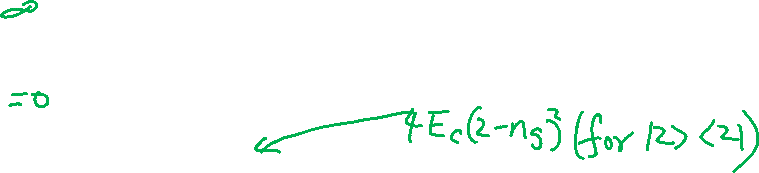 ∞
=0
4Ec(2-ng)² (for |2> <2|)